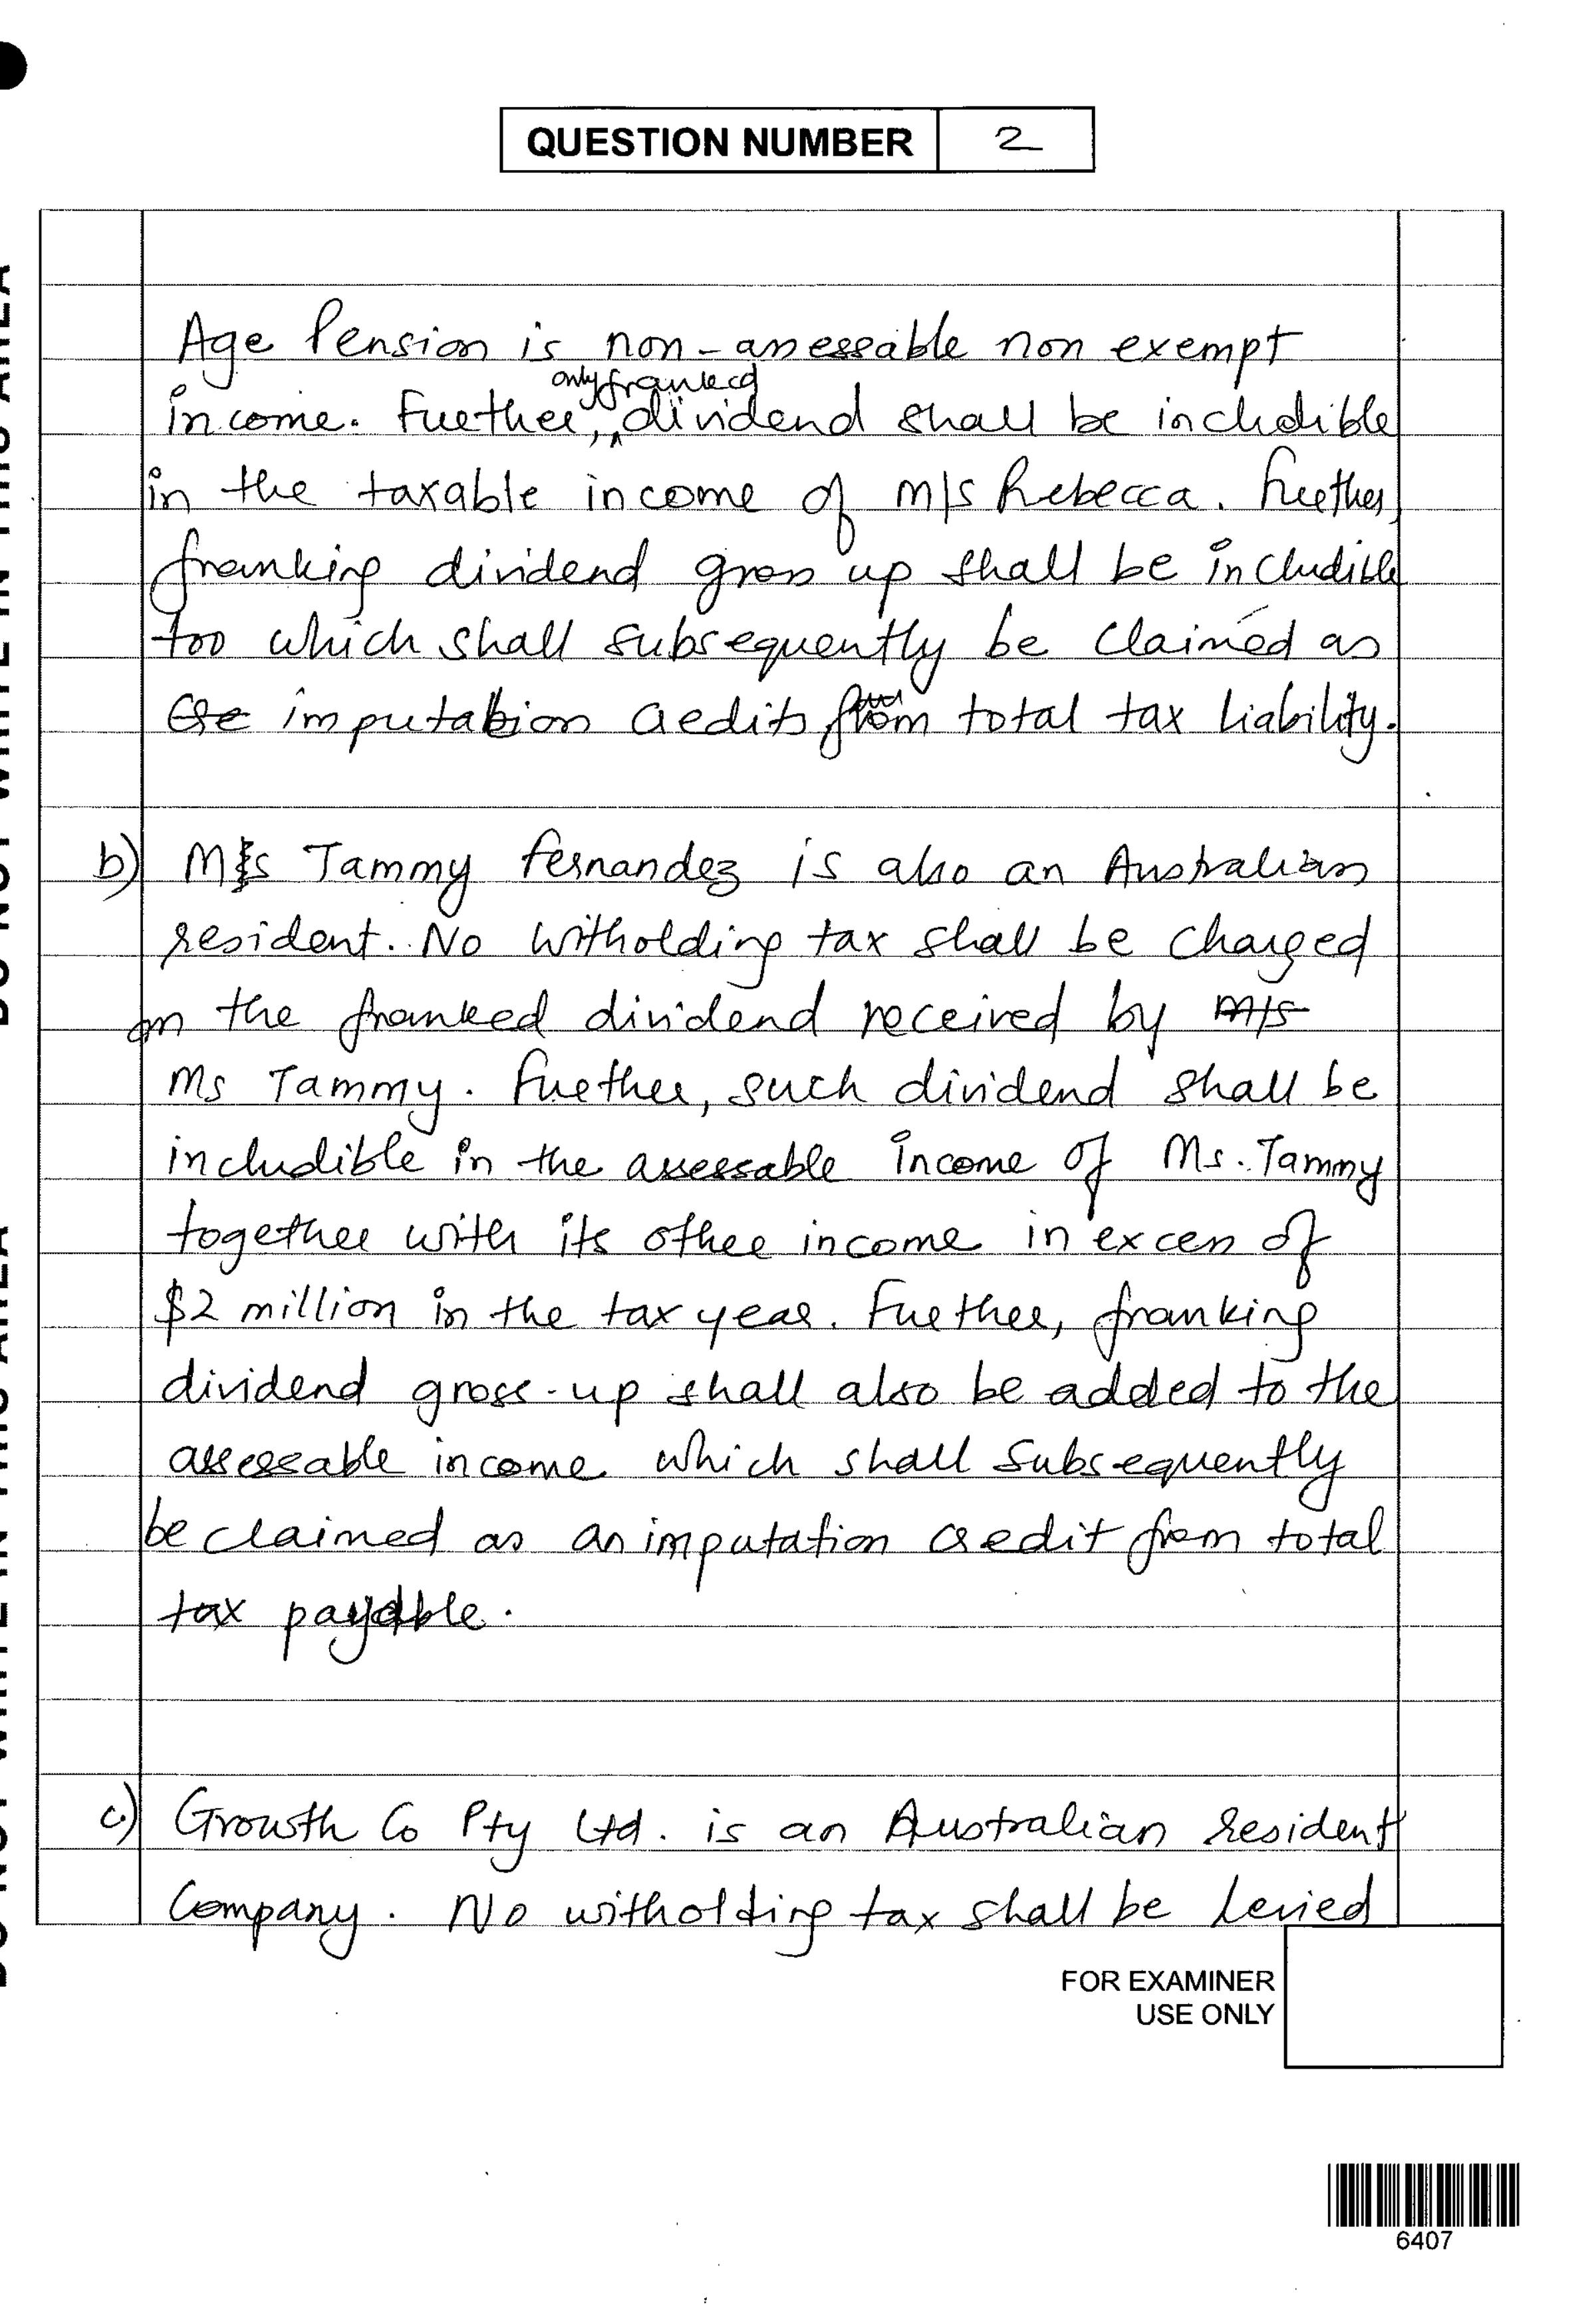 QUESTION NUMBER 2
Age Pension is non-assessable non exempt
income. Further, only franked dividend shall be includible
in the taxable income of M/S Rebecca. Further,
franking dividend gross up shall be includible
too which shall subsequently be claimed as
Cre imputation credits from total tax liability.
b) Ms Tammy Fernandez is also an Australian
resident. No witholding tax shall be charged
on the franked dividend received by M/S
Ms Tammy. Further, such dividend shall be
includible in the assessable income of Ms. Tammy
together with its other income in excess of
$2 million in the tax year. Further, franking
dividend gross-up shall also be added to the
assessable income which shall subsequently
be claimed as an imputation credit from total
tax payable.
c) Growth Co Pty Ltd. is an Australian resident
Company. No witholding tax shall be levied
FOR EXAMINER
USE ONLY
6407